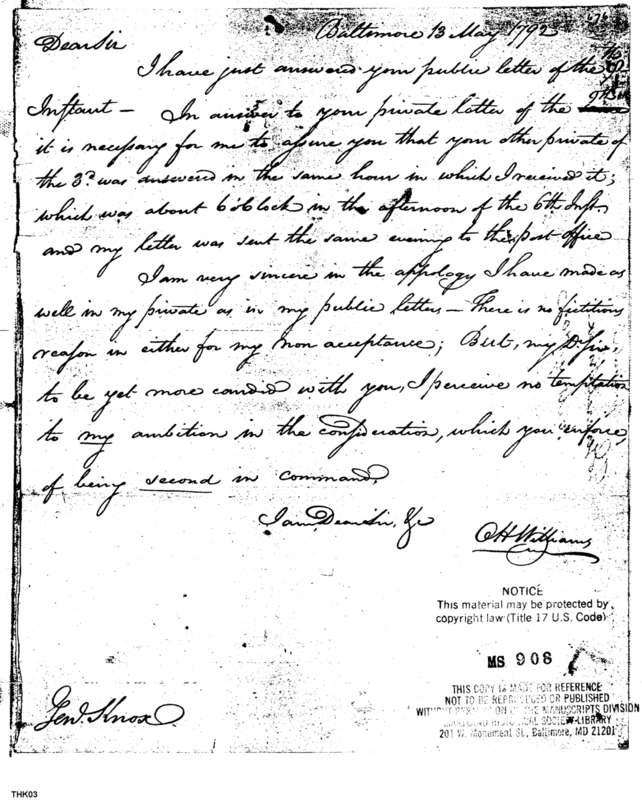 676
Baltimore 13 May 1792
Dear Sir
I have just answered your public letter of the
Instant — In answer to your private letter of the 9th Inst
it is necessary for me to assure you that your other private of
the 3d. was answered in the same hour in which I received it;
which was about 6 oClock in the afternoon of the 6th Inst.
and my letter was sent the same evening to the post office
I am very sincere in the appology I have made as
well in my private as in my public letters — There is no fictitious
reason in either for my non acceptance; But, my D. Sir,
to be yet more candid with you, I perceive no temptation
to my ambition in the consideration, which you enforce,
of being second in command.
I am, Dear Sir, &c
OHWilliams
NOTICE
This material may be protected by
copyright law (Title 17 U.S. Code)
MS 908
THIS COPY IS MADE FOR REFERENCE
NOT TO BE REPRODUCED OR PUBLISHED
WITHOUT PERMISSION OF THE MANUSCRIPTS DIVISION
MARYLAND HISTORICAL SOCIETY LIBRARY
201 W. Monument St., Baltimore, MD 21201
Genl. Knox
THK03